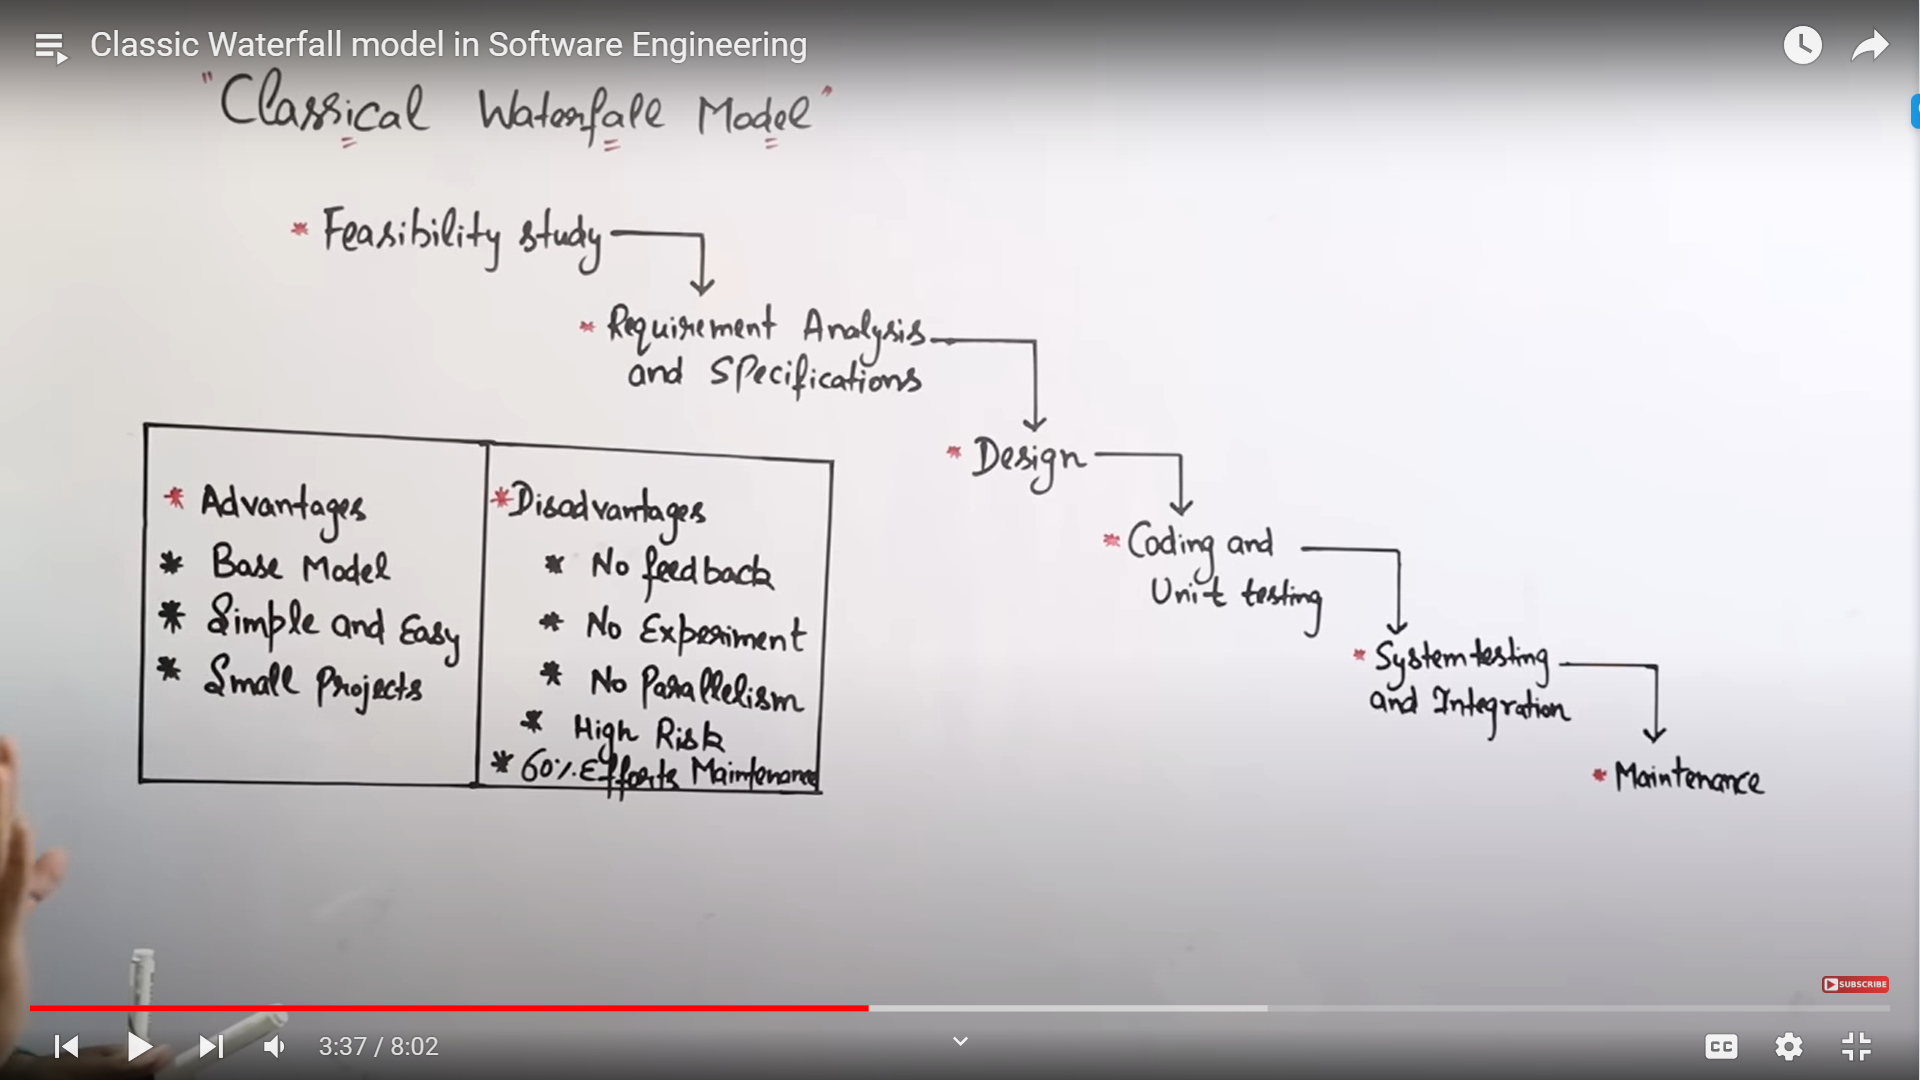 Classic Waterfall model in Software Engineering
"Classical Waterfall Model"
* Feasibility study
* Requirement Analysis
and Specifications
* Design
* Coding and
Unit testing
* System testing
and Integration
* Maintenance
* Advantages
* Base Model
* Simple and Easy
* Small Projects
* Disadvantages
* No feedback
* No Experiment
* No Parallelism
* High Risk
* 60% Efforts Maintenance
SUBSCRIBE
3:37 / 8:02
CC